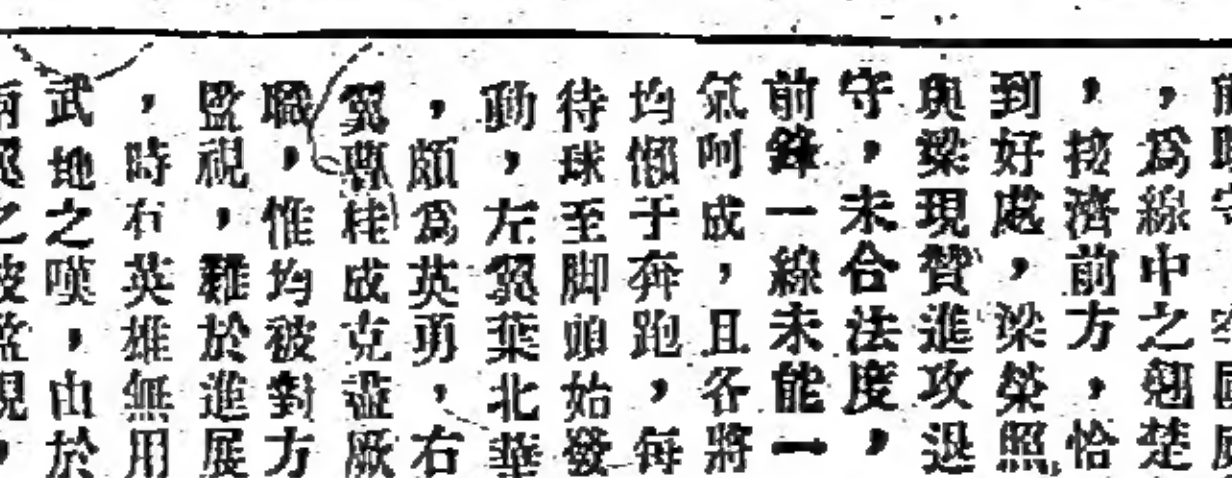 ，為線中之翹楚
，接濟前方，恰
到好處，梁榮照
與梁現贊進攻退
守，未合法度，
前鋒一線未能一
氣呵成，且各將
均懶于奔跑，每
待球至脚頭始發
動，左翼葉北華
，頗為英勇，右
翼鄭桂成克盡厥
職，惟均被對方
監視，難於進展
，時有英雄無用
武地之嘆，由於
兩翼之被監視，